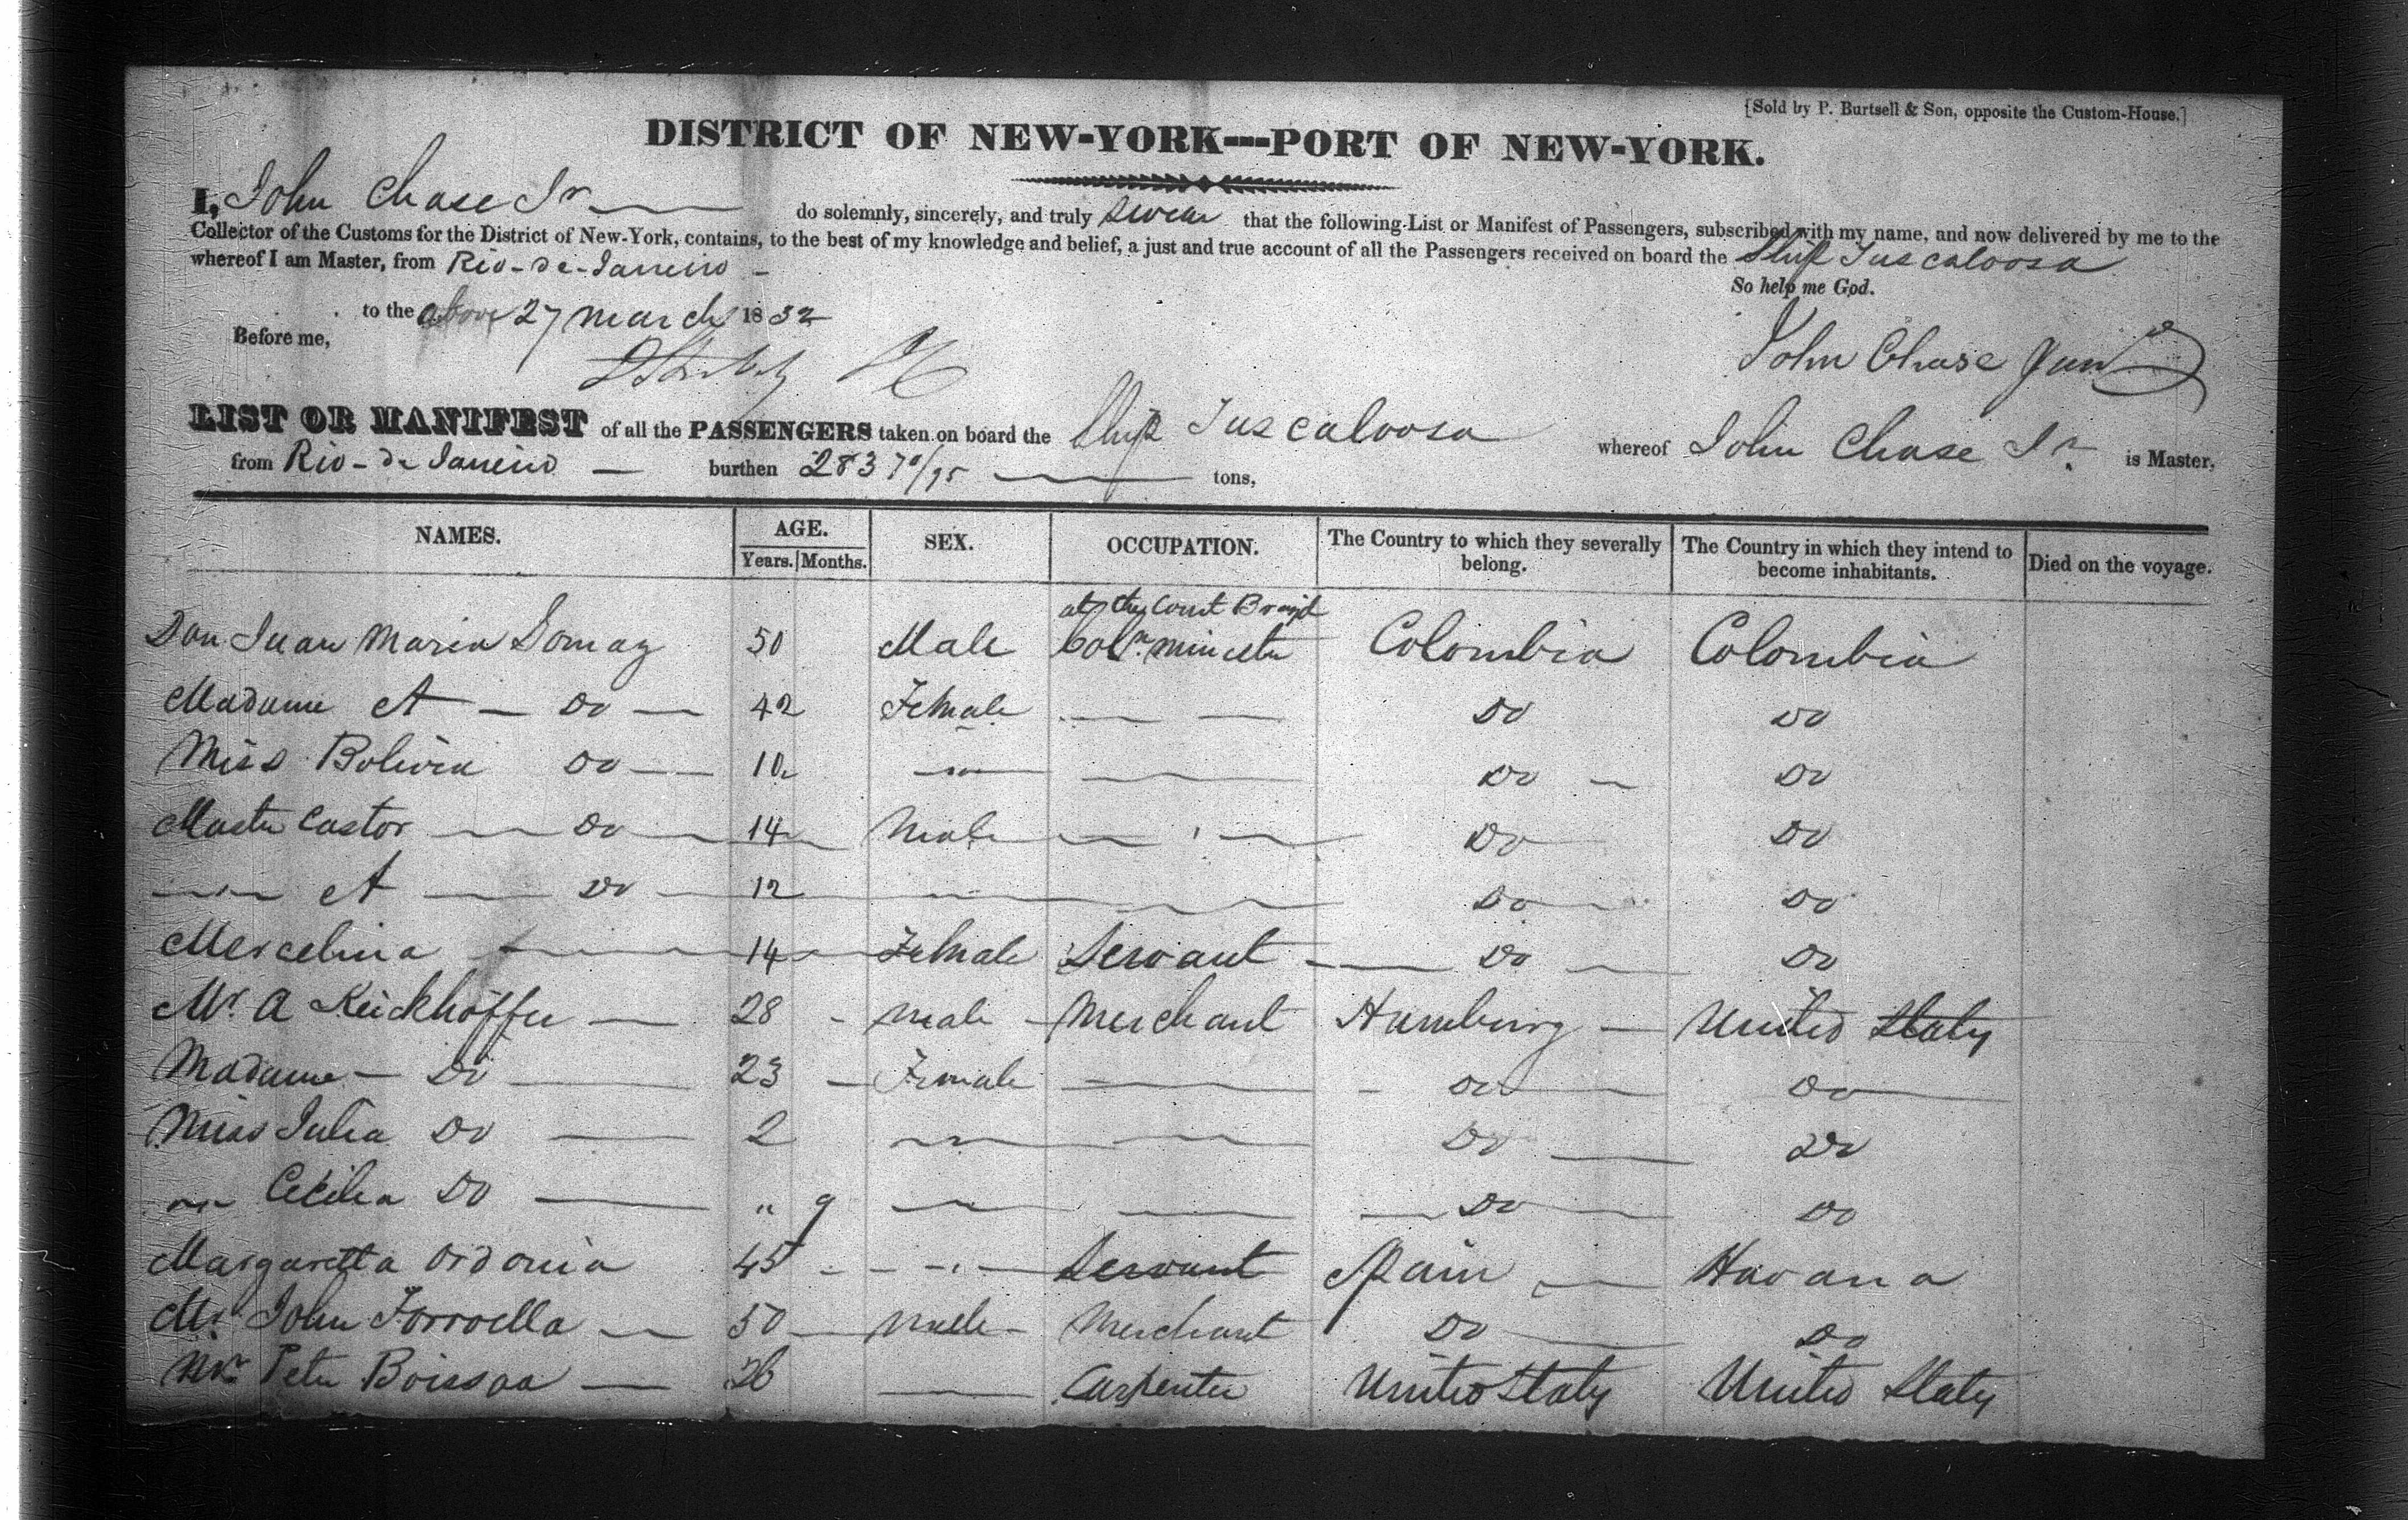 [Sold by P. Burtsell & Son, opposite the Custom-House.]
DISTRICT OF NEW-YORK---PORT OF NEW-YORK.
I, John Chase Jr do solemnly, sincerely, and truly swear that the following List or Manifest of Passengers, subscribed with my name, and now delivered by me to the
Collector of the Customs for the District of New-York, contains, to the best of my knowledge and belief, a just and true account of all the Passengers received on board the Ship Tuscaloosa
whereof I am Master, from Rio-de-Janeiro
So help me God.
to the above 27 March 1832
Before me,
John Chase Junr
LIST OR MANIFEST of all the PASSENGERS taken on board the Ship Tuscaloosa whereof John Chase Jr. is Master,
from Rio-de Janeiro burthen 283 70/95 tons,
NAMES. AGE. Years. Months. SEX. OCCUPATION. The Country to which they severally belong. The Country in which they intend to become inhabitants. Died on the voyage.
at the Court Brazil
Don Juan Maria Gomaz 50 Male Col.n minister Colombia Colombia
Madame A Do 42 Female Do Do
Miss Bolivia Do 10 Do Do
Master Castor Do 14 Male Do Do
A Do 12 Do Do
Mercelina 14 Female Servant Do Do
Mr. A Keickhoffer 28 male Merchant Hamburg United States
Madame Do 23 Female Do Do
Miss Julia Do 2 Do Do
Cecilia Do " 9 Do Do
Margaretta Odonia 45 Servant Spain Havana
Mr John Forroella 50 Male Merchant Do Do
Mr Peter Boissoa 26 Carpenter United States United States